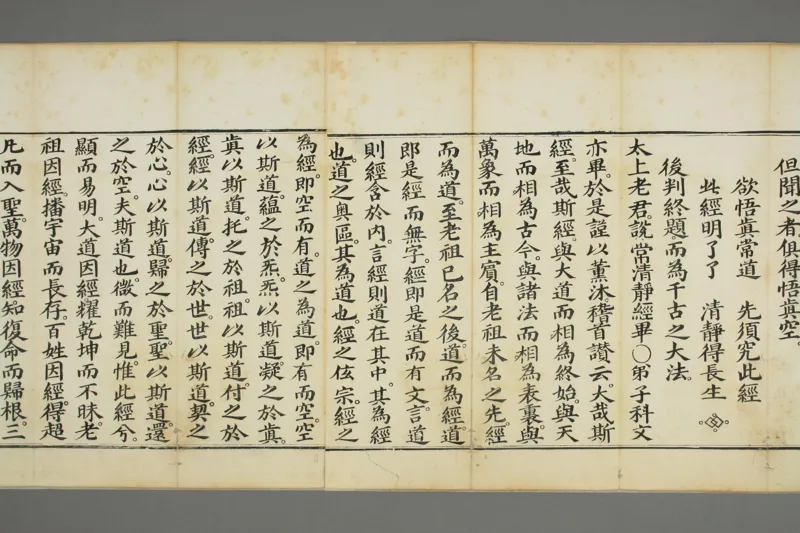 但聞之者俱得悟真空。
欲悟真常道　先須究此經
此經明了了　清靜得長生
後判終題而為千古之大法。
太上老君說常清靜經畢〇弟子科文
亦畢。於是謹以薰沐稽首讚云。大哉斯
經。至哉斯經。與大道而相為終始。與天
地而相為古今。與諸法而相為表裏。與
萬象而相為主賔。自老祖未名之先。經
而為道。至老祖已名之後。道而為經。道
即是經而無字。經即是道而有文。言道
則經含於內。言經則道在其中。其為經
也。道之奥區。其為道也。經之伭宗。經之
為經。即空而有。道之為道。即有而空。空
以斯道。蘊之於炁。炁以斯道。凝之於真。
真以斯道。托之於祖。祖以斯道。付之於
經。經以斯道。傳之於世。世以斯道。契之
於心。心以斯道。歸之於聖。聖以斯道。還
之於空。夫斯道也。微而難見。惟此經兮。
顯而易明。大道因經。耀乾坤而不昧。老
祖因經。播宇宙而長存。百姓因經。得超
凡而入聖。萬物因經。知復命而歸根。三